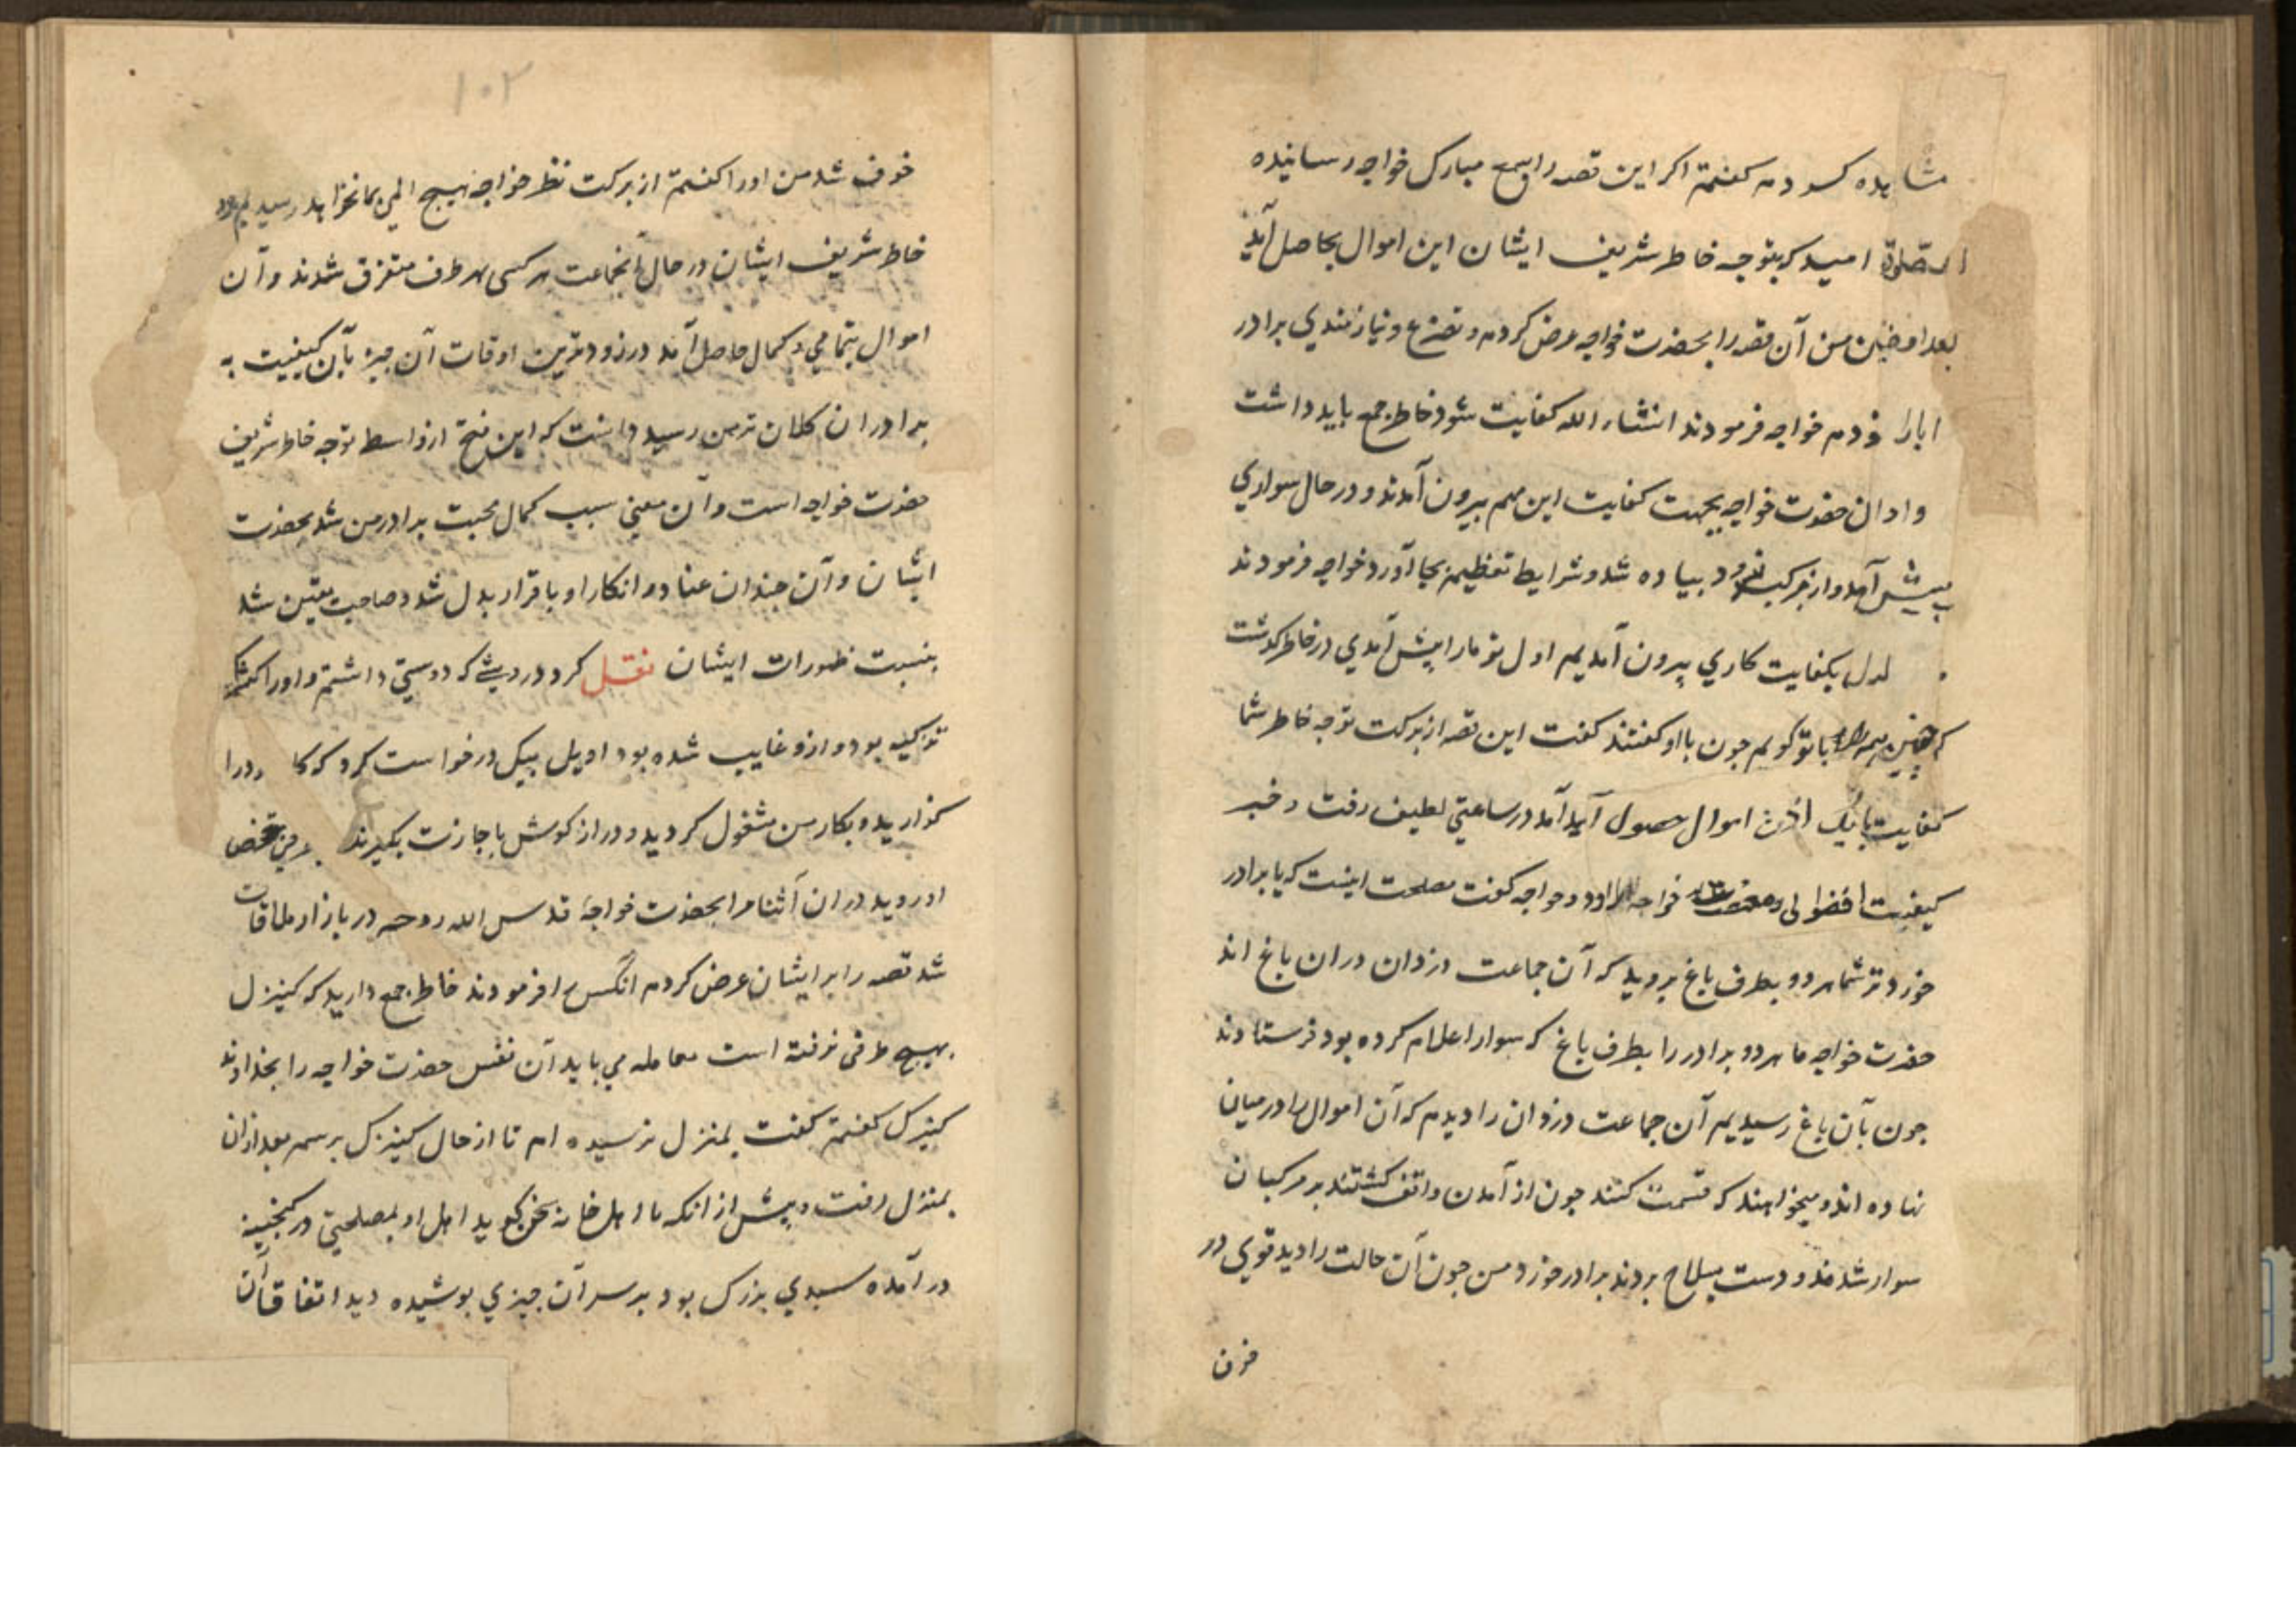 مشاهده کردم گفتم اکر این قصه را بسمع مبارک خواجه رسانیده
امید که بتوجه خاطر شریف ایشان این اموال بحاصل آید
بعد من آن قصه را بحضرت خواجه عرض کردم و تضرع و نیازمندی برادر
خواجه فرمودند انشاء الله کفایت شود خاطر جمع باید داشت
حضرت خواجه بجهت کفایت این مهم بیرون آمدند و در حال سواری
پیش آمد و از مرکب فرود پیاده شد و شرایط تعظیم بجا آورد خواجه فرمودند
بکفایت کاری بیرون آمدیم اول تو مارا پیش آمدی در خاطر کذشت
با تو کویم جون با او کفتند کفت این قصه از برکت توجه خاطر شما
کفایت اموال حصول آید آمد در ساعتی لطیف رفت و خبر
کیفیت خواجه کفت مصلحت اینست که با برادر
خورد تر شما هر دو بطرف باغ بروید که آن جماعت دزدان دران باغ اند
حضرت خواجه ما هر دو برادر را بطرف باغ که سوار اعلام کرده بود فرستادند
جون بآن باغ رسیدیم آن جماعت دزدان را دیدم که آن اموال را در میان
نهاده اند و میخواهند که قسمت کنند جون از آمدن واقف کشتند بر مرکبان
سوار شدند و دست بسلاح بردند برادر خورد من جون آن حالت را دید قوی در
خوف
۱۰۲
خوف شد من اورا کفتم از برکت نظر خواجه هیچ المی بما نخواهد رسید
خاطر شریف ایشان در حال آنجماعت هر کسی بهر طرف متفرق شدند و آن
اموال بتمامی و کمال حاصل آمد در زودترین اوقات آن خبر بآن کیفیت به
برادران کلان تر من رسید دانست که این فتح از واسطه توجه خاطر شریف
حضرت خواجه است و آن معنی سبب کمال محبت برادر من شد بحضرت
ایشان و آن جندان عناد و انکار او باقرار بدل شد و صاحب یقین شد
بنسبت ظهورات ایشان نقل کرد درویشی که دوستی داشتم و اورا
کنیزکی بود و ازو غایب شده بود درخواست کرد که
کذارید و بکار من مشغول کردید و دراز کوش باجازت بکیرند
دران آثنا مرا بحضرت خواجه قدس الله روحه در بازار ملاقات
شد قصه را بر ایشان عرض کردم آنکس را فرمودند خاطر جمع دارید که کنیزک
بهیچ طرفی نرفته است معامله می باید آن نفس حضرت خواجه را بخداوند
کنیزک کفتم کفت بمنزل نرسیده ام تا از حال کنیزک برسم بعد ازان
بمنزل رفت و پیش از آنکه با اهل خانه سخن کوید اهل او بمصلحتی در کنجینه
در آمده سبدی بزرک بود بر سر آن جیزی بوشیده دید اتفاقا آن